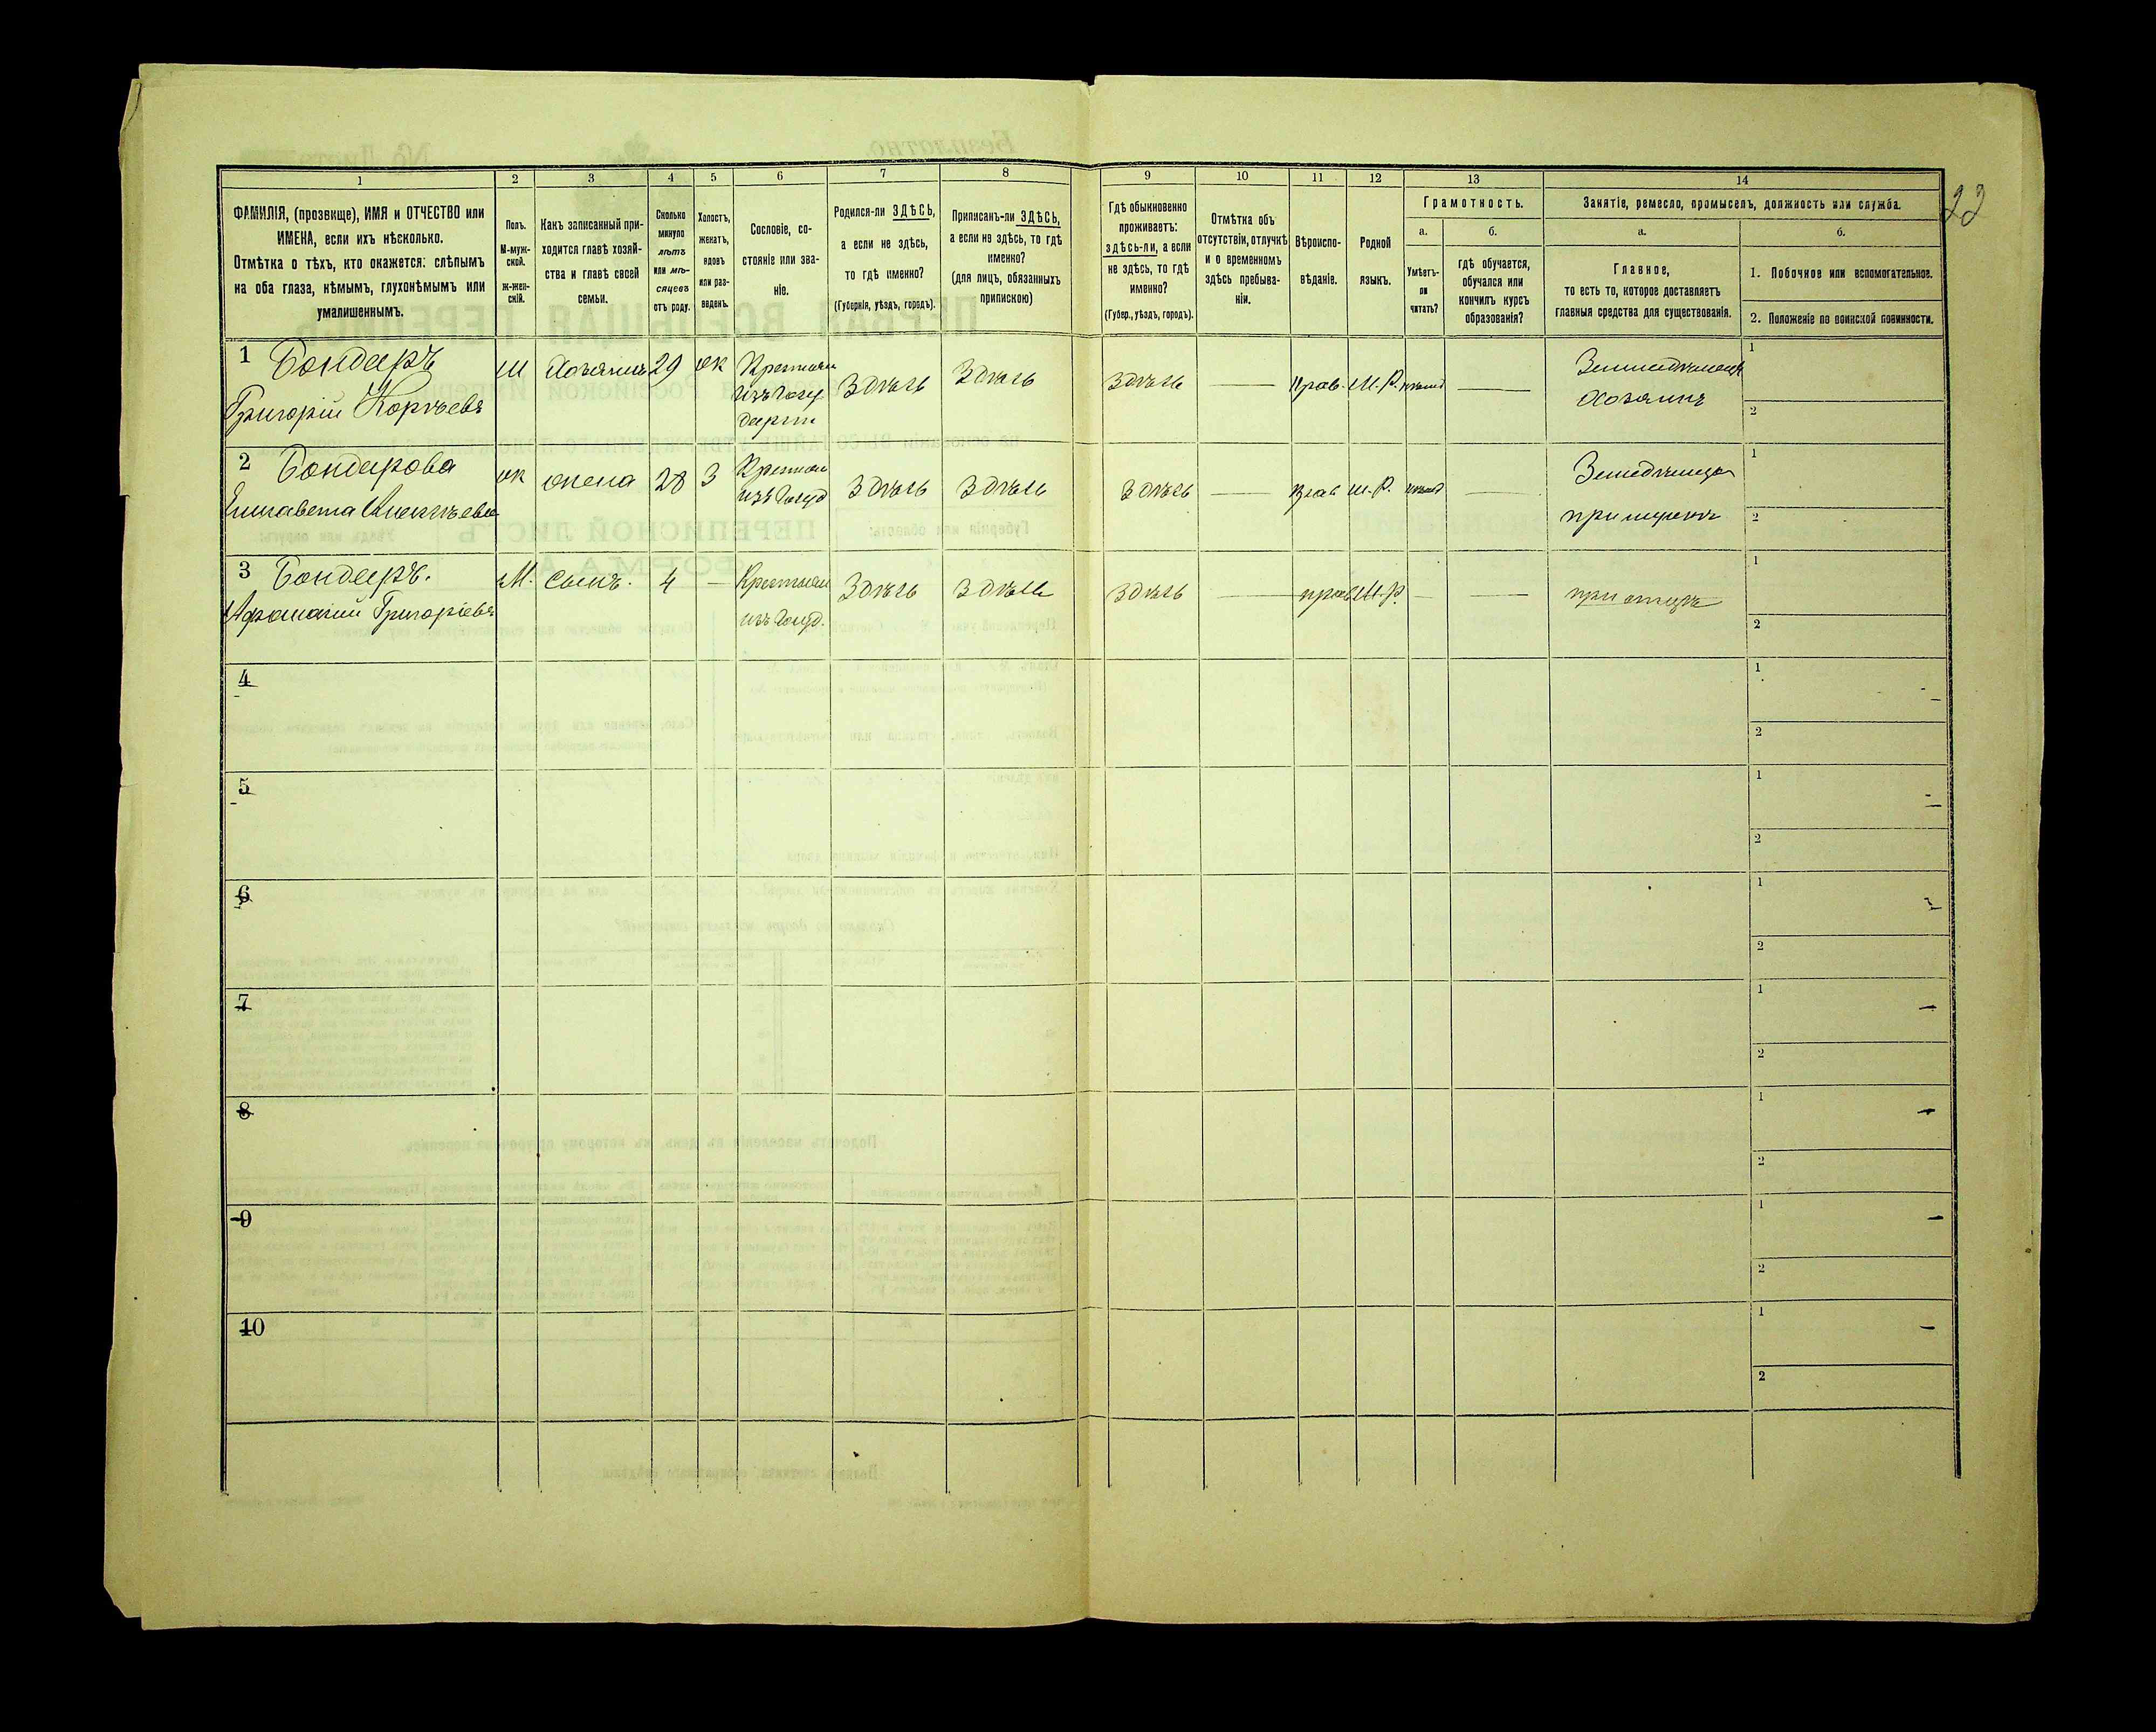 22
1 2 3 4 5 6 7 8 9 10 11 12 13 14
ФАМИЛІЯ, (прозвище), ИМЯ и ОТЧЕСТВО или
ИМЕНА, если ихъ нѣсколько.
Отмѣтка о тѣхъ, кто окажется: слѣпымъ
на оба глаза, нѣмымъ, глухонѣмымъ или
умалишеннымъ.
Полъ.
М-муж-
ской.
ж-жен-
скій.
Какъ записанный при-
ходится главѣ хозяй-
ства и главѣ своей
семьи.
Сколько
минуло
лѣтъ
или мѣ-
сяцевъ
отъ роду.
Холостъ,
женатъ,
вдовъ
или раз-
веденъ.
Сословіе, со-
стояніе или зва-
ніе.
Родился-ли ЗДѢСЬ,
а если не здѣсь,
то гдѣ именно?
(Губернія, уѣздъ, городъ).
Приписанъ-ли ЗДѢСЬ,
а если не здѣсь, то гдѣ
именно?
(для лицъ, обязанныхъ
припискою)
Гдѣ обыкновенно
проживаетъ:
здѣсь-ли, а если
не здѣсь, то гдѣ
именно?
(Губер., уѣздъ, городъ).
Отмѣтка объ
отсутствіи, отлучкѣ
и о временномъ
здѣсь пребыва-
ніи.
Вѣроиспо-
вѣданіе.
Родной
языкъ.
Грамотность.
а.
Умѣетъ-
ли
читать?
б.
гдѣ обучается,
обучался или
кончилъ курсъ
образованія?
Занятіе, ремесло, промыселъ, должность или служба.
а.
Главное,
то есть то, которое доставляетъ
главныя средства для существованія.
б.
1. Побочное или вспомогательное.
2. Положеніе по воинской повинности.
1 Бондаръ
Григорій
м
Хозяинъ
29
ж
Крестьян
изъ госу
дарств
Здѣсь
Здѣсь
Здѣсь
Прав.
М.Р.
нѣтъ
Земледѣлецъ
Хозяинъ
1
2
2 Бондарова
Елисавета Алексѣевна
ж
жена
28
З
Крестьян
изъ госуд
Здѣсь
Здѣсь
Здѣсь
Прав
М.Р.
нѣтъ
при мужѣ
1
2
3 Бондаръ.
Афанасій Григоріевъ
М.
сынъ.
4
Крестьян
изъ госуд.
Здѣсь
Здѣсь
Здѣсь
прав
М.Р.
при отцѣ
1
2
4
1
2
5
1
2
6
1
2
7
1
2
8
1
2
9
1
2
10
1
2